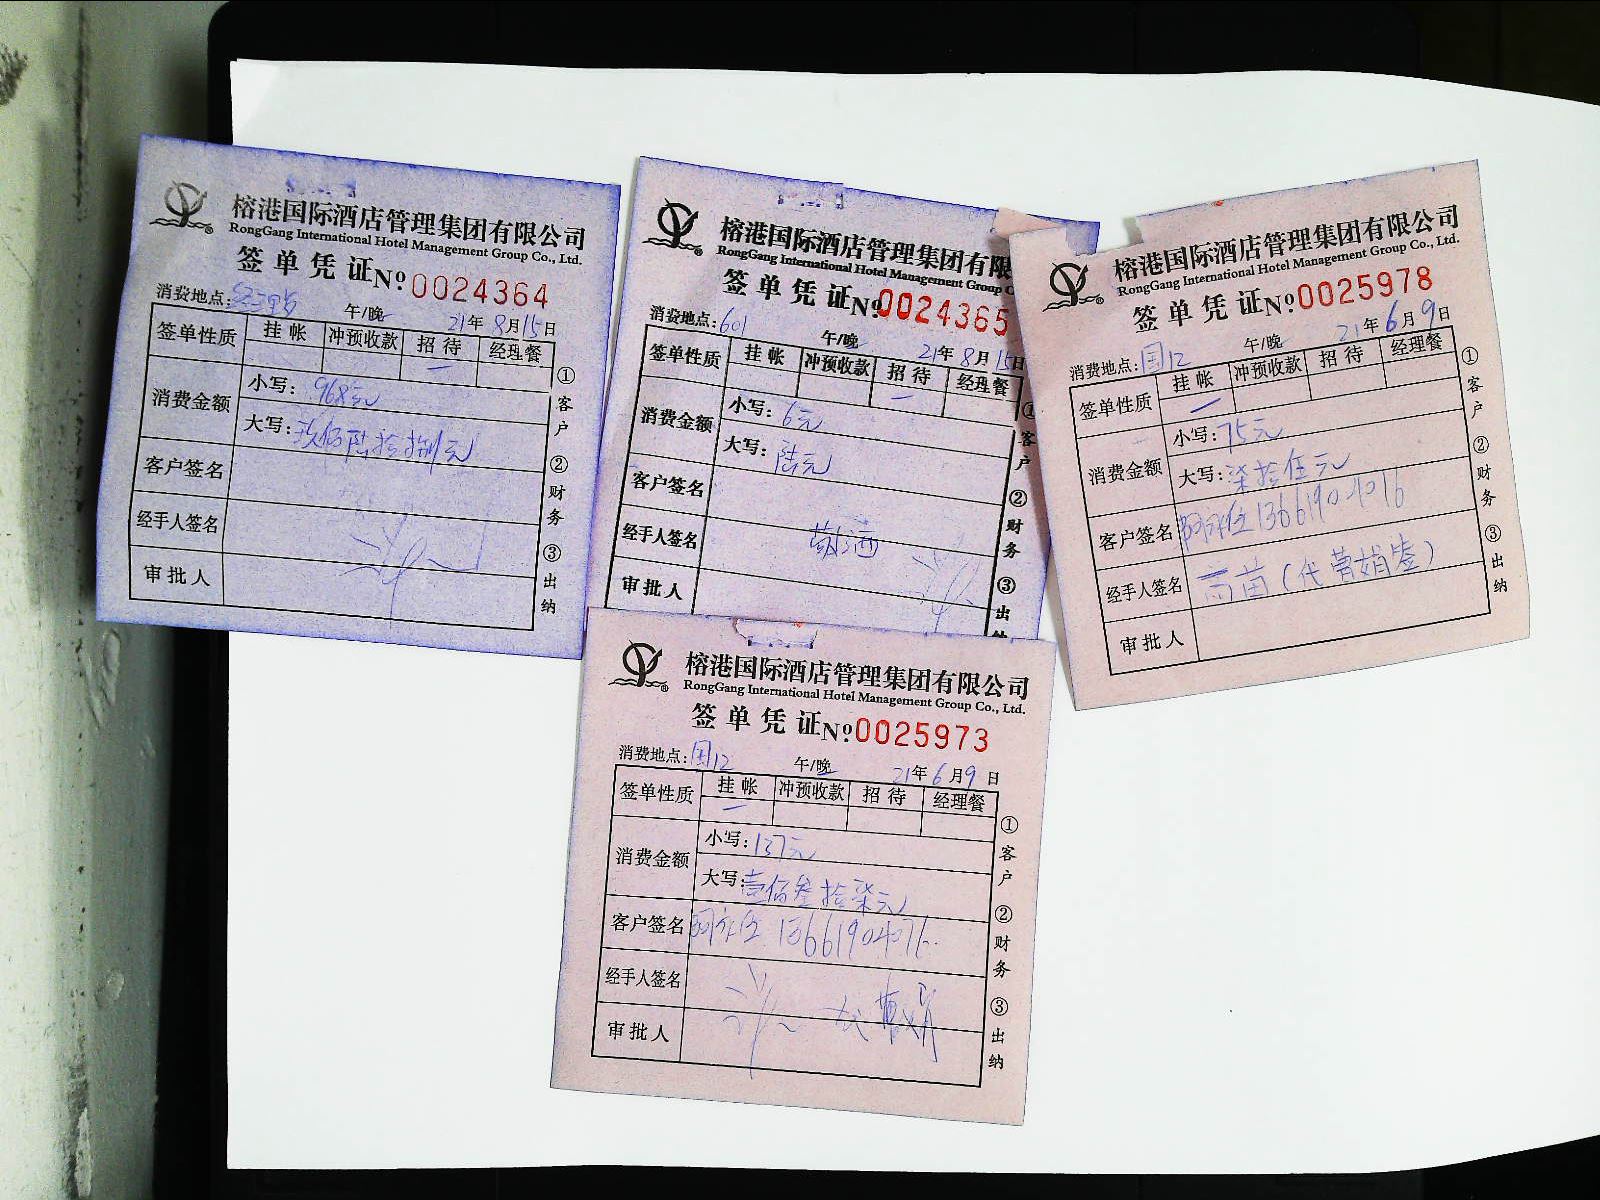 榕港国际酒店管理集团有限公司
RongGang International Hotel Management Group Co., Ltd.
签单凭证№0024364
消费地点:
午/晚 21年8月15日
签单性质 挂帐 冲预收款 招待 经理餐
消费金额
小写: 968元
大写: 玖佰陆拾捌元
客户签名
经手人签名
审批人
①客户 ②财务 ③出纳
榕港国际酒店管理集团有限
RongGang International Hotel Management Group C
签单凭证№0024365
消费地点: 601
午/晚 21年8月15日
签单性质 挂帐 冲预收款 招待 经理餐
消费金额
小写: 6元
大写: 陆元
客户签名
经手人签名
审批人
①客户 ②财务 ③出纳
榕港国际酒店管理集团有限公司
RongGang International Hotel Management Group Co., Ltd.
签单凭证№0025978
消费地点: 国12
午/晚 21年6月9日
签单性质 挂帐 冲预收款 招待 经理餐
消费金额
小写: 75元
大写: 柒拾伍元
客户签名 13661904076
经手人签名 高苗(代 签)
审批人
①客户 ②财务 ③出纳
榕港国际酒店管理集团有限公司
RongGang International Hotel Management Group Co., Ltd.
签单凭证№0025973
消费地点: 国12
午/晚 21年6月9日
签单性质 挂帐 冲预收款 招待 经理餐
消费金额
小写: 137元
大写: 壹佰叁拾柒元
客户签名 13661904076
经手人签名
审批人
①客户 ②财务 ③出纳